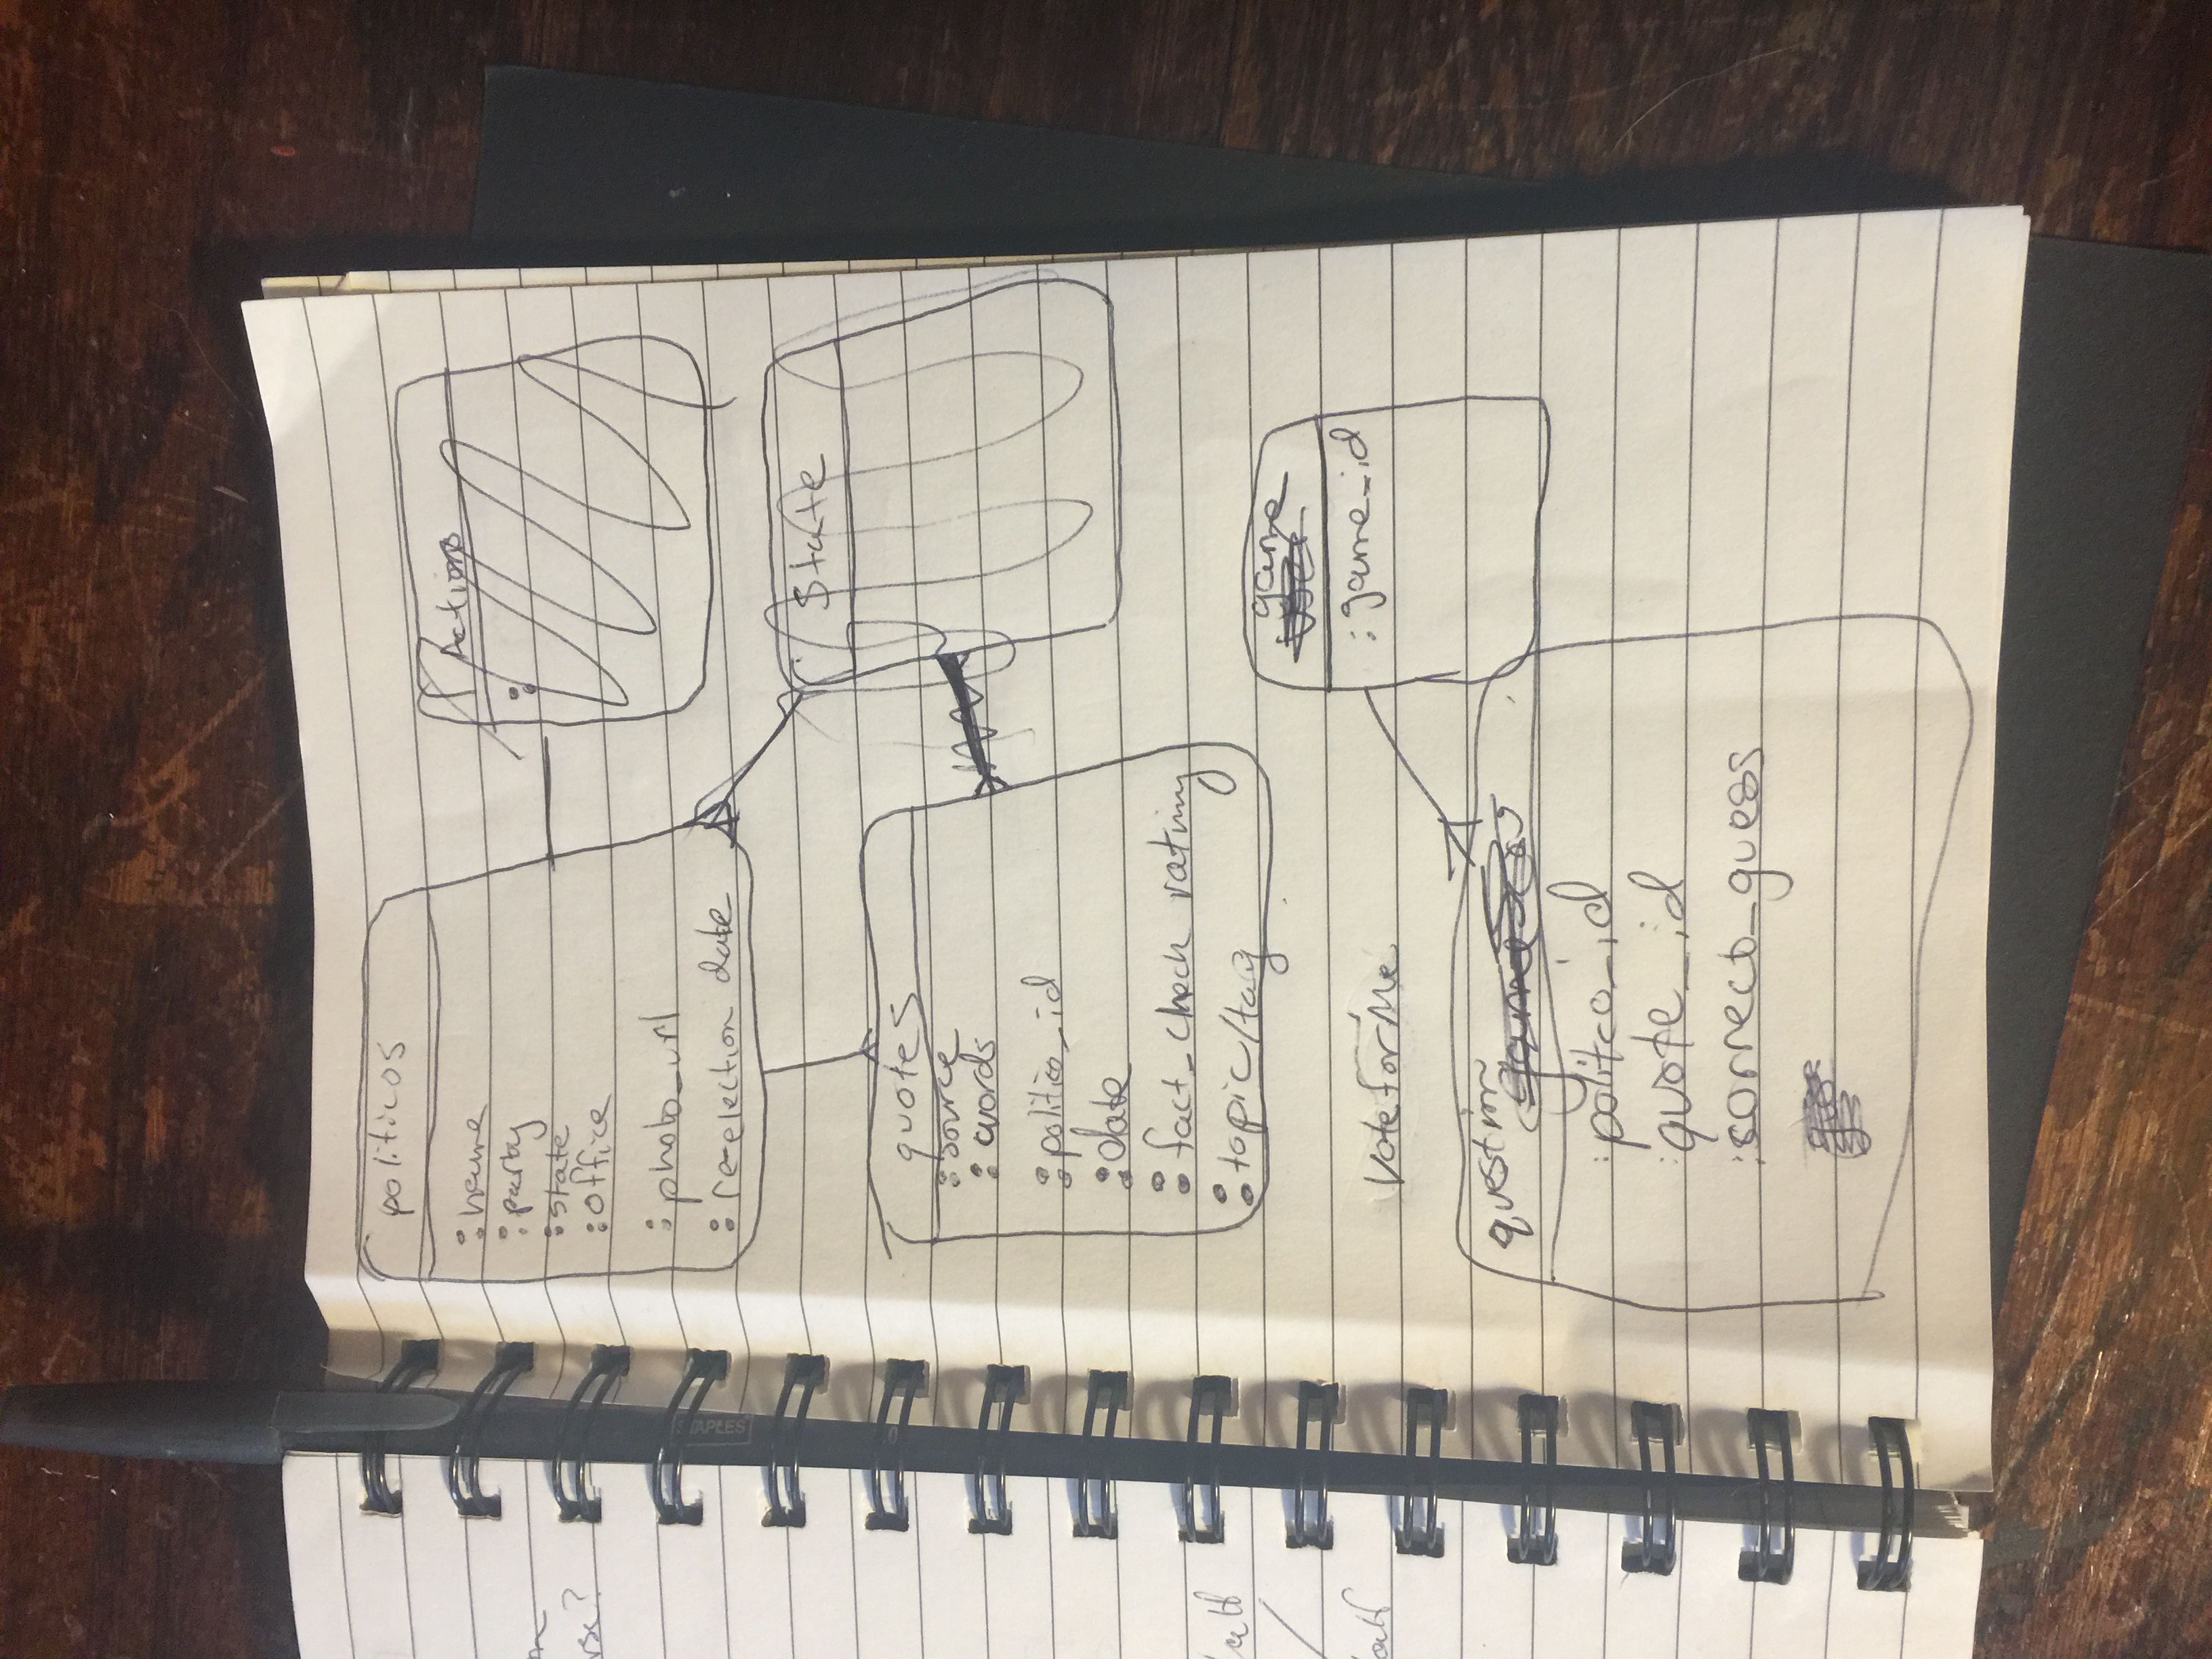 politicos
:name
:party
:state
:office
:photo_url
:re-election date
Actions
:
State
quotes
:source
:words
:politico_id
:date
:fact_check rating
:topic/tag
game
User
:game_id
VoteForMe
question
game
:politco_id
:quote_id
:sorrect_guess
rse?
half
half
STAPLES